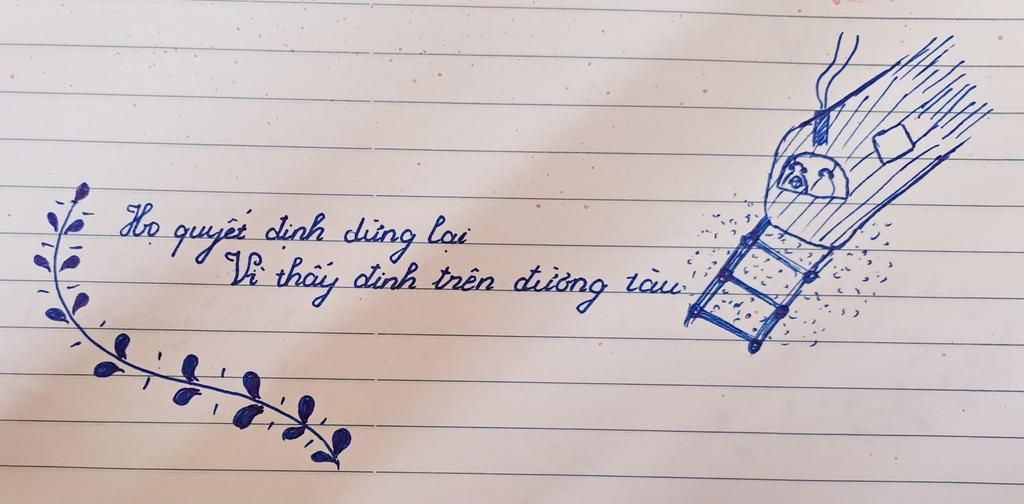 Họ quyết định dừng lại
Vì thấy đinh trên đường tàu